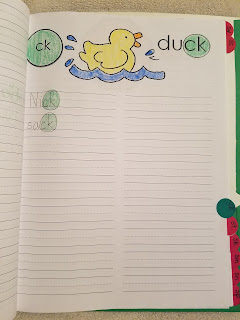 ck duck
Nick
sack